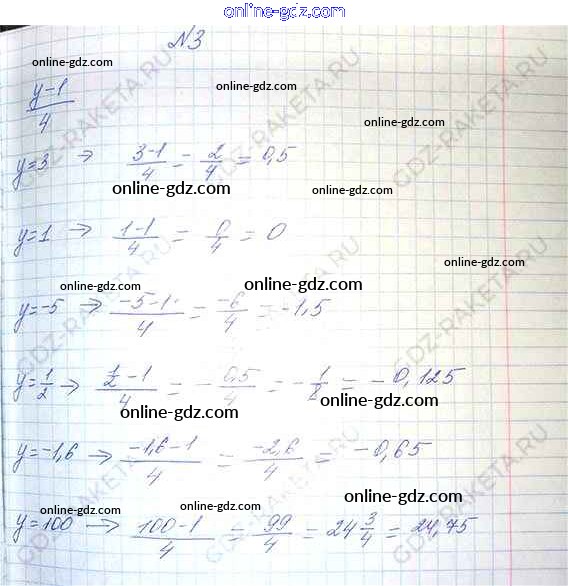 online-gdz.com
№3
online-gdz.com online-gdz.com
online-gdz.com
(y-1)/4
online-gdz.com
y=3 → (3-1)/4 = 2/4 = 0,5
online-gdz.com online-gdz.com
y=1 → (1-1)/4 = 0/4 = 0
online-gdz.com
online-gdz.com online-gdz.com
y=-5 → (-5-1)/4 = -6/4 = -1,5
online-gdz.com
y=1/2 → (1/2 -1)/4 = -0,5/4 = -1/8 = -0,125
online-gdz.com online-gdz.com
y=-1,6 → (-1,6-1)/4 = -2,6/4 = -0,65
online-gdz.com online-gdz.com
online-gdz.com
y=100 → (100-1)/4 = 99/4 = 24 3/4 = 24,75
online-gdz.com
GDZ-RAKETA.RU
GDZ-RAKETA.RU
GDZ-RAKETA.RU
GDZ-RAKETA.RU
GDZ-RAKETA.RU
GDZ-RAKETA.RU